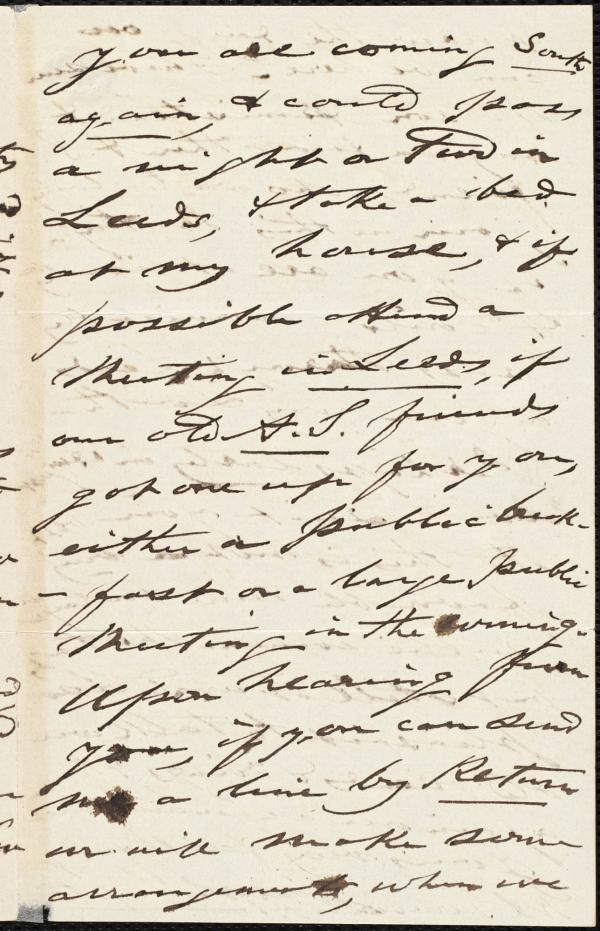 you are coming South
again, & could pass
a night or two in
Leeds, & take a bed
at my house, & if
possible attend a
Meeting in Leeds, if
our old A.S. friends
got one up for you,
either a public break-
- fast or a large public
Meeting in the evening.
Upon hearing from
you, if you can send
me a line by Return
we will make some
arrangements, when we